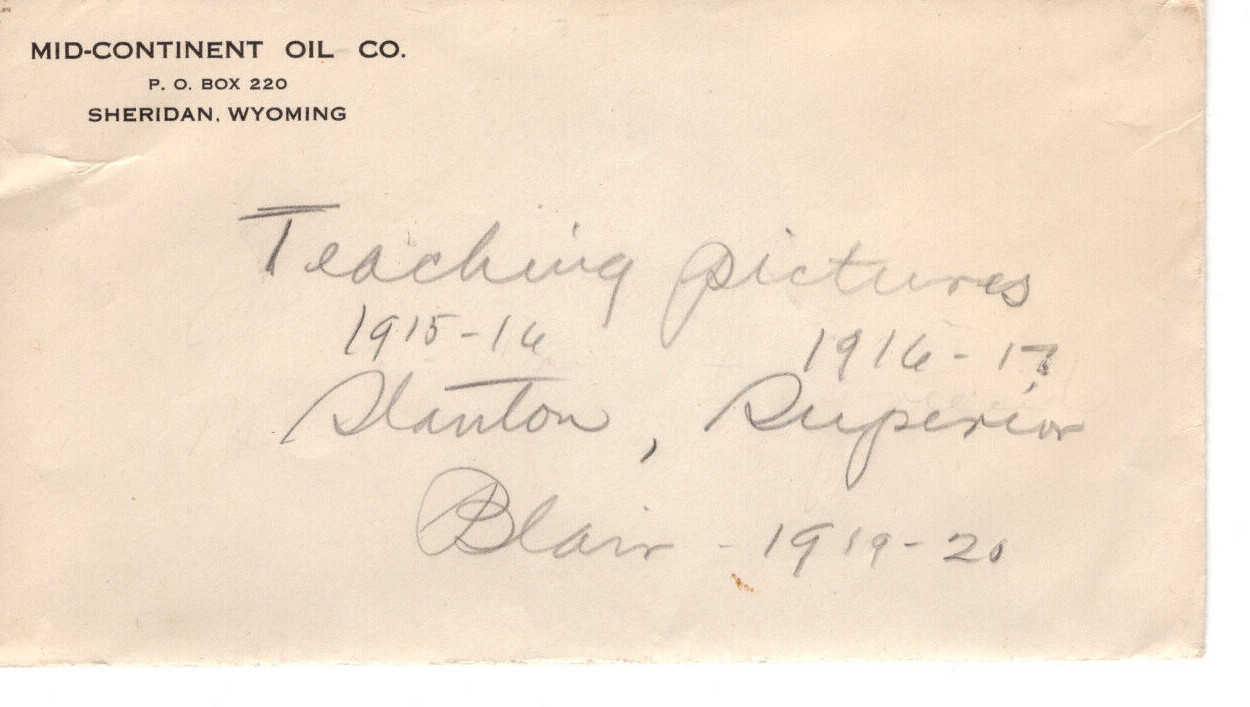 MID-CONTINENT OIL CO.
P. O. BOX 220
SHERIDAN, WYOMING
Teaching pictures
1915-16 1916-17
Stanton, Superior
Blair - 1919-20